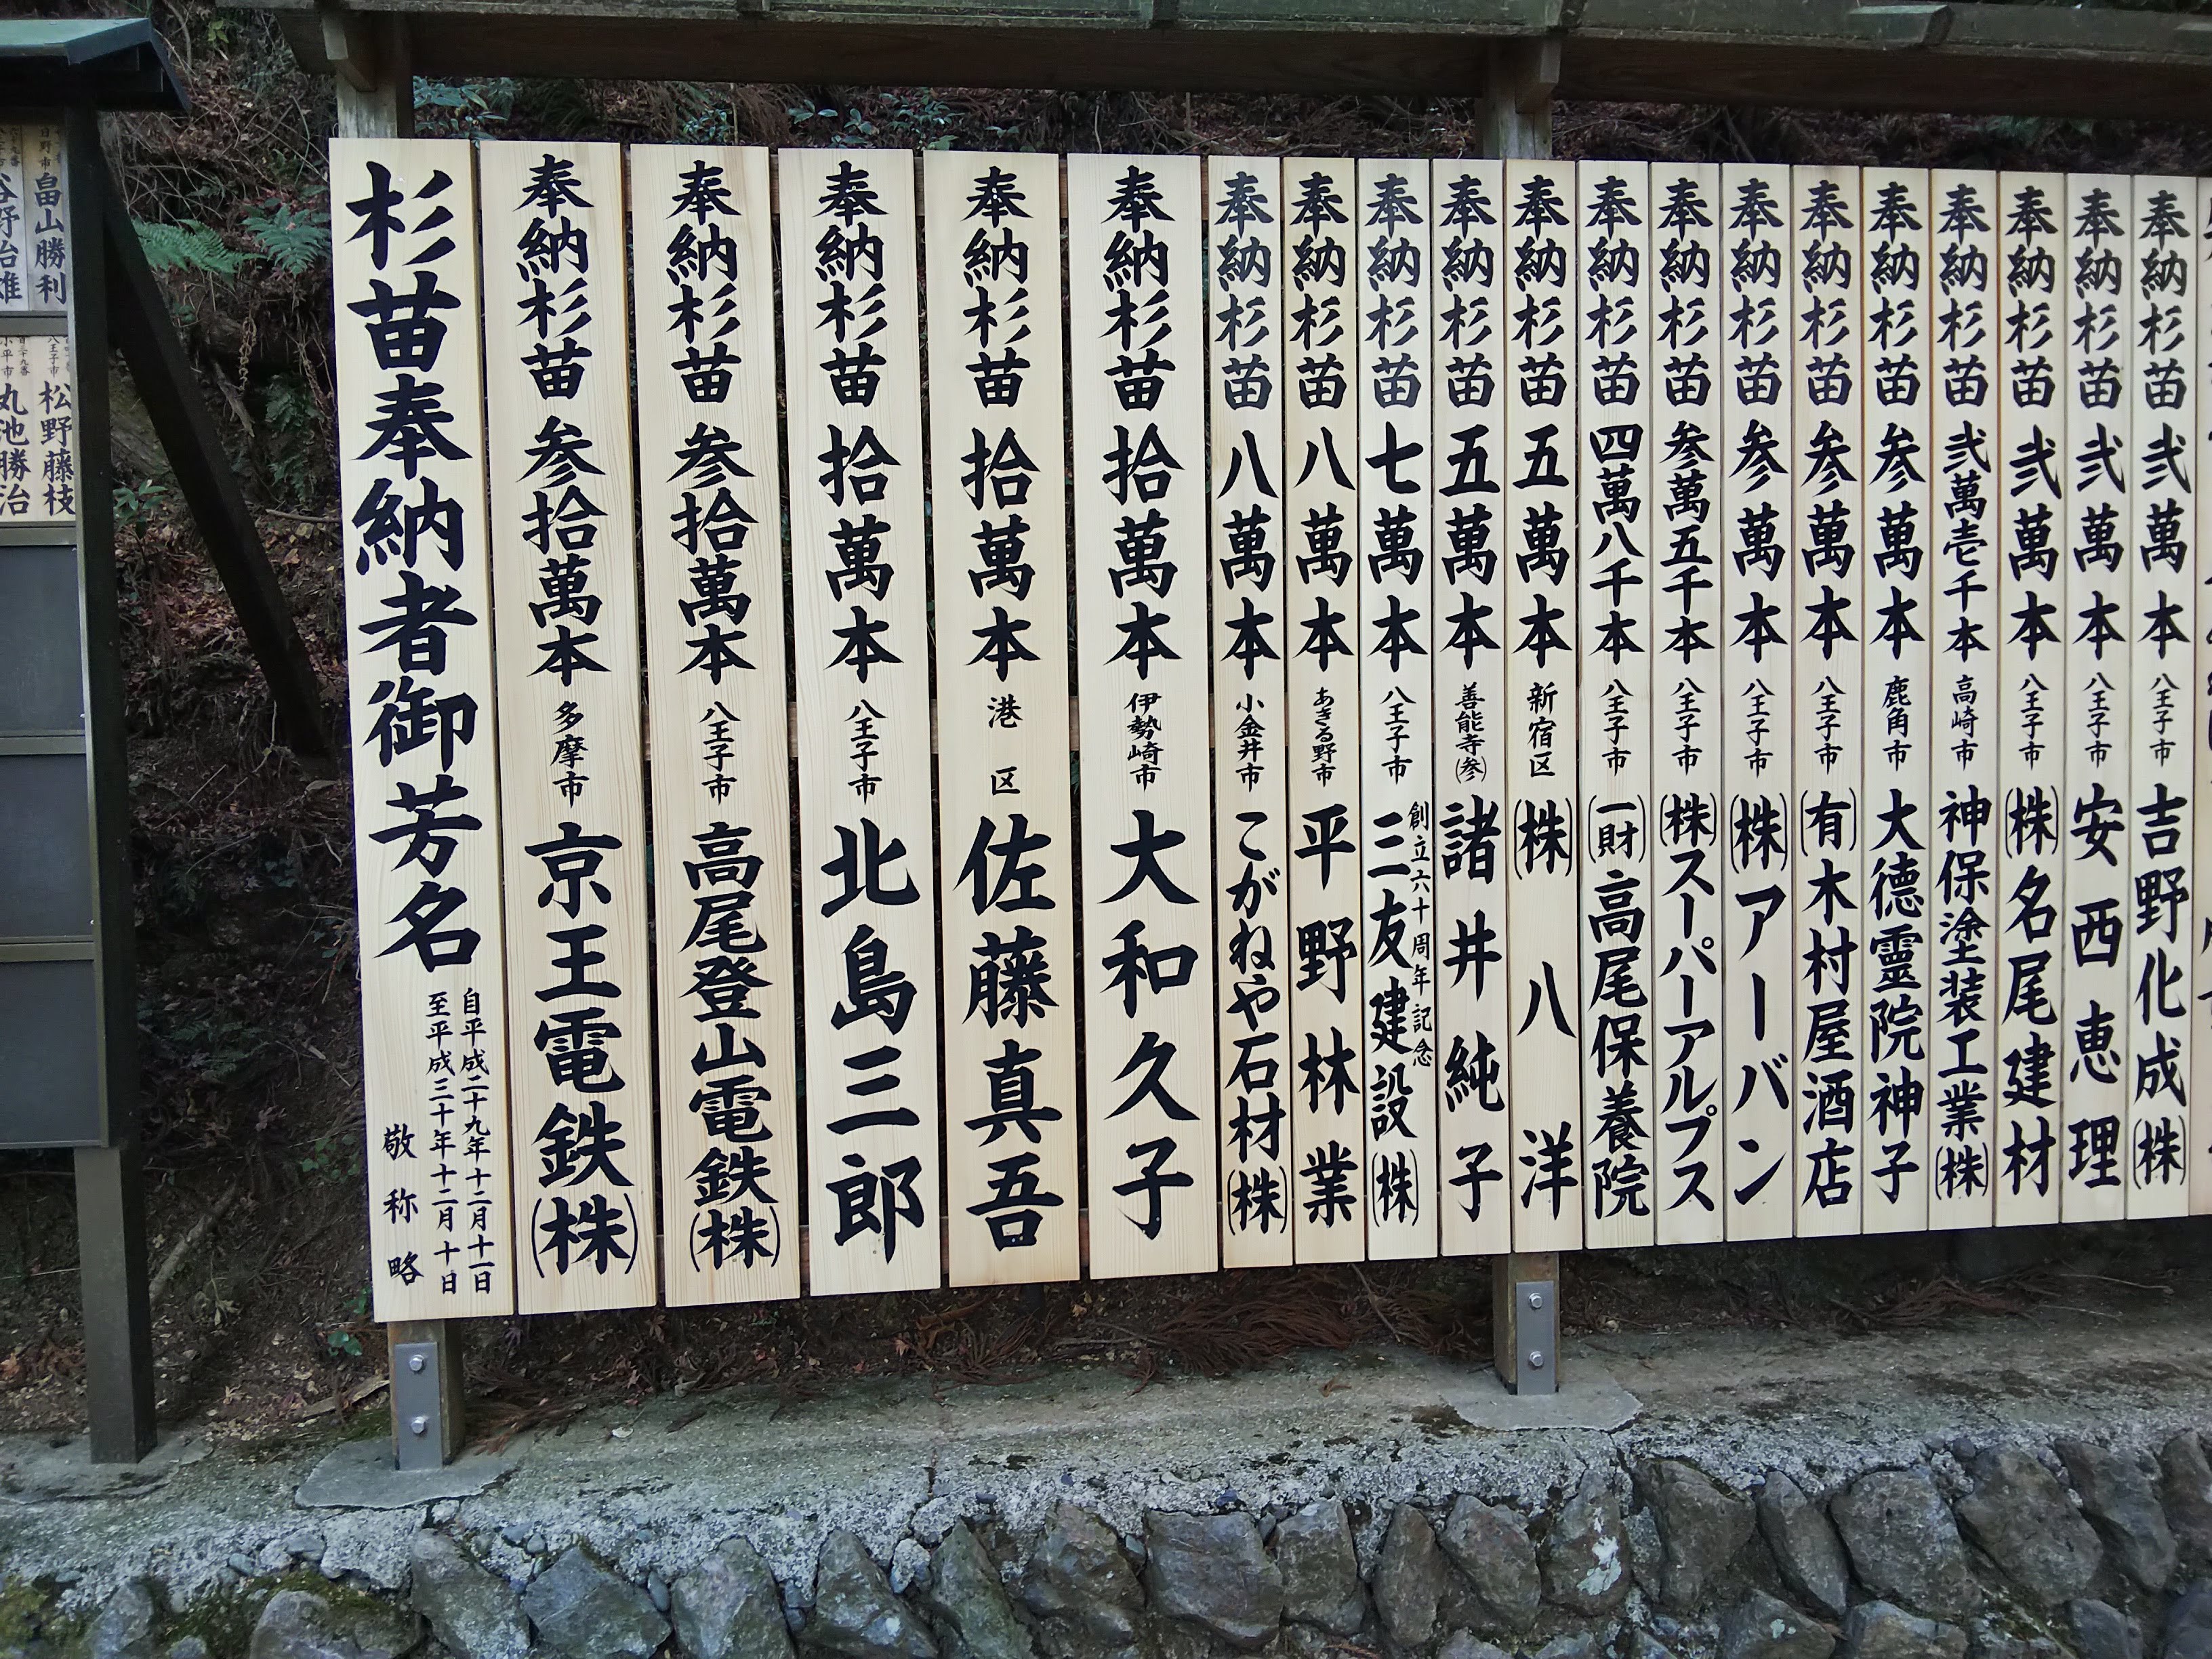 杉苗奉納者御芳名 自平成二十九年十二月十一日 至平成三十年十二月十日 敬称略
奉納杉苗 参拾萬本 多摩市 京王電鉄(株)
奉納杉苗 参拾萬本 八王子市 高尾登山電鉄(株)
奉納杉苗 拾萬本 八王子市 北島三郎
奉納杉苗 拾萬本 港区 佐藤真吾
奉納杉苗 拾萬本 伊勢崎市 大和久子
奉納杉苗 八萬本 小金井市 こがねや石材(株)
奉納杉苗 八萬本 あきる野市 平野林業
奉納杉苗 七萬本 八王子市 創立六十周年記念 三友建設(株)
奉納杉苗 五萬本 善能寺(参) 諸井純子
奉納杉苗 五萬本 新宿区 (株)八洋
奉納杉苗 四萬八千本 八王子市 (一財)高尾保養院
奉納杉苗 参萬五千本 八王子市 (株)スーパーアルプス
奉納杉苗 参萬本 八王子市 (株)アーバン
奉納杉苗 参萬本 八王子市 (有)木村屋酒店
奉納杉苗 参萬本 鹿角市 大徳霊院神子
奉納杉苗 弐萬壱千本 高崎市 神保塗装工業(株)
奉納杉苗 弐萬本 八王子市 (株)名尾建材
奉納杉苗 弐萬本 八王子市 安西恵理
奉納杉苗 弐萬本 八王子市 吉野化成(株)
日野市 畠山勝利
谷野治雄
八王子市 松野藤枝
小平市 丸池勝治